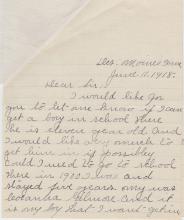 Des. Moines Iowa
June 11. 1918.
Dear Sir.
I would like for
you to let me know if I can
get a boy in school there
he is eleven year old and
I would like very much to
get him in if possibly
could I used to go to school
there in 1900 I was and
stayed five years my was
and it
is my boy that I want get in